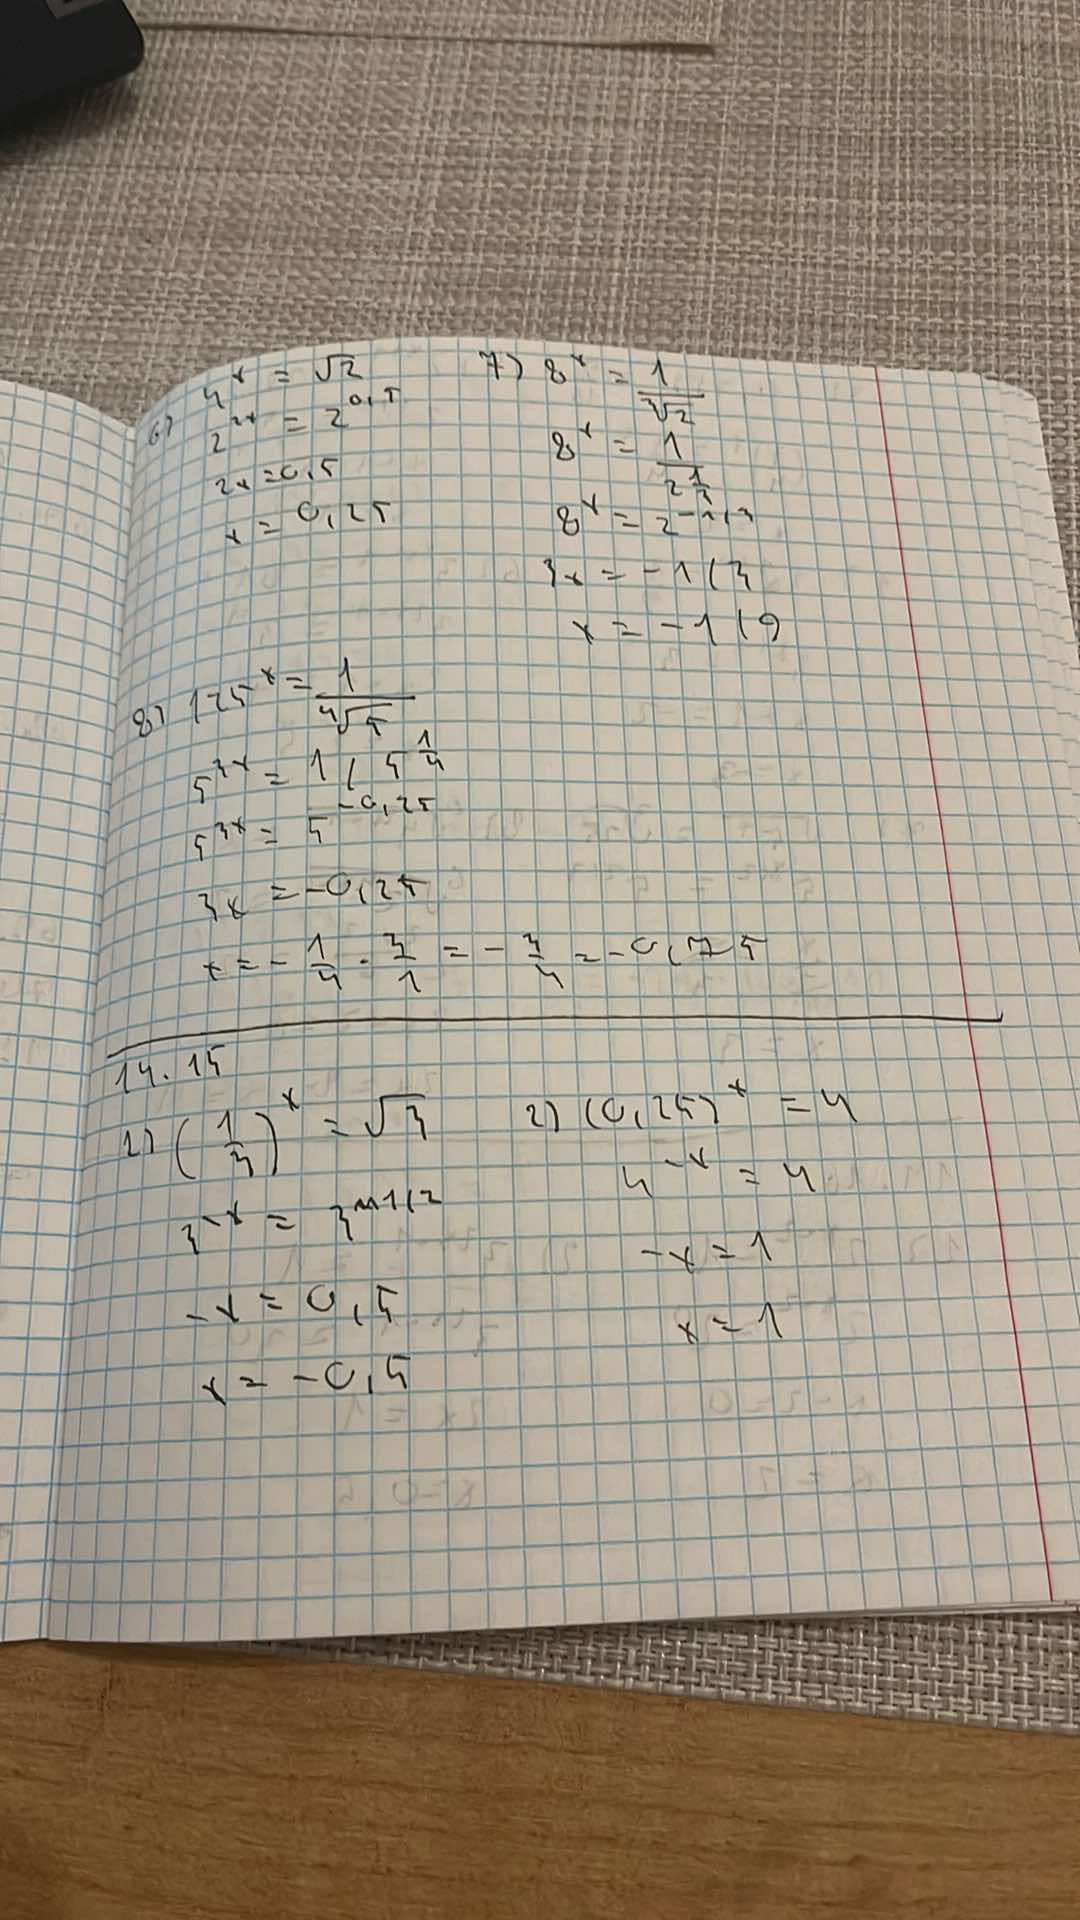 6) 4^x = √2
2^{2x} = 2^{0,5}
2x = 0,5
x = 0,25
7) 8^x = 1/∛2
8^x = 1/2^{1/3}
8^x = 2^{-1/3}
3x = -1/3
x = -1/9
8) 125^x = 1/∜5
5^{3x} = 1/5^{1/4}
5^{3x} = 5^{-0,25}
3x = -0,25
x = -1/4 · 3/1 = -3/4 = -0,75
14.15
1) (1/3)^x = √3
3^{-x} = 3^{1/2}
-x = 0,5
x = -0,5
2) (0,25)^x = 4
4^{-x} = 4
-x = 1
x = 1